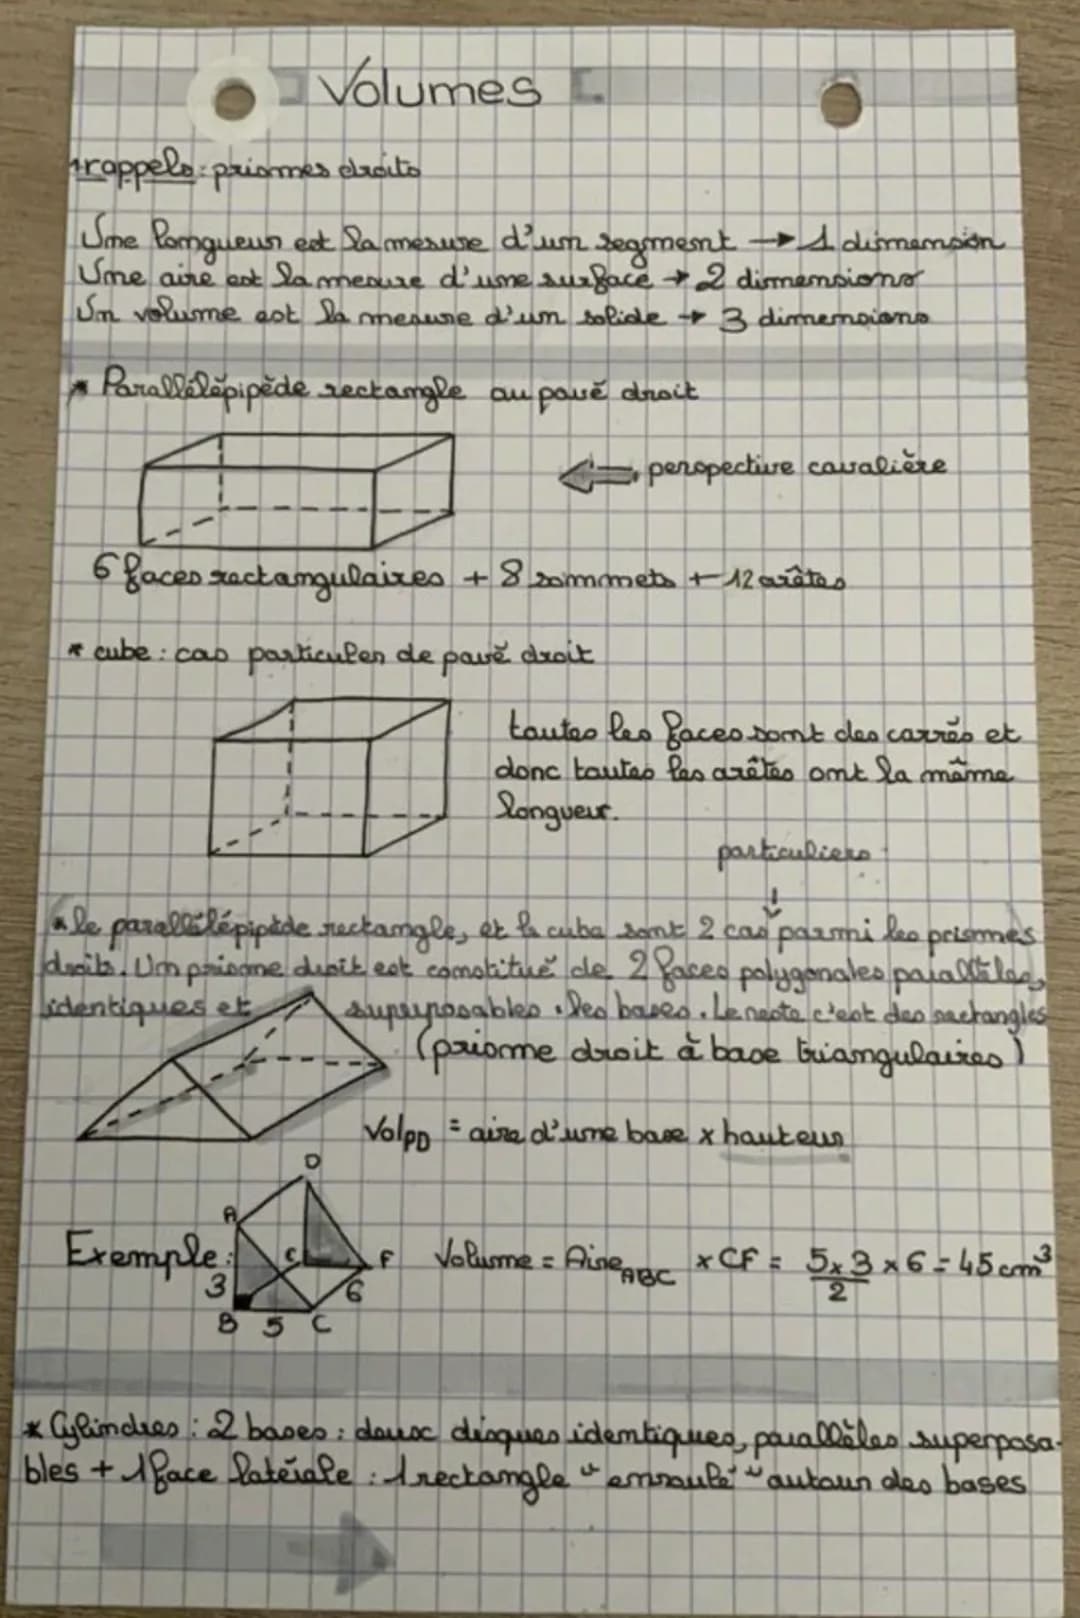 Volumes
rappels : prismes droits
Une longueur est la mesure d'un segment → 1 dimension
Une aire est la mesure d'une surface → 2 dimensions
Un volume est la mesure d'un solide → 3 dimensions
* Parallélépipède rectangle ou pavé droit
perspective cavalière
6 faces rectangulaires + 8 sommets + 12 arêtes
* cube : cas particulier de pavé droit
toutes les faces sont des carrés et
donc toutes les arêtes ont la même
longueur.
particuliers
* le parallélépipède rectangle, et le cube sont 2 cas parmi les prismes
droits. Un prisme droit est constitué de 2 faces polygonales parallèles,
identiques et superposables : les bases. Le reste c'est des rectangles
(prisme droit à base triangulaires)
Vol PD = aire d'une base x hauteur
D
A
Exemple : E F Volume = Aire ABC x CF = 5x3/2 x 6 = 45 cm³
3 6
B 5 C
* Cylindres : 2 bases : deux disques identiques, parallèles superposa-
bles + 1 face latérale : 1 rectangle "enroulé" autour des bases